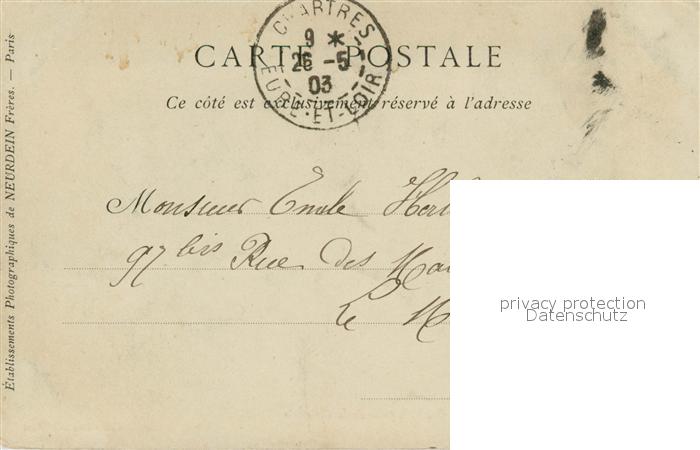 CARTE POSTALE
CHARTRES
9 *
26 -5
03
EURE-ET-LOIR
Ce côté est exclusivement réservé à l'adresse
Monsieur Emile
97 bis Rue des
Le
privacy protection
Datenschutz
Établissements Photographiques de NEURDEIN Frères. — Paris